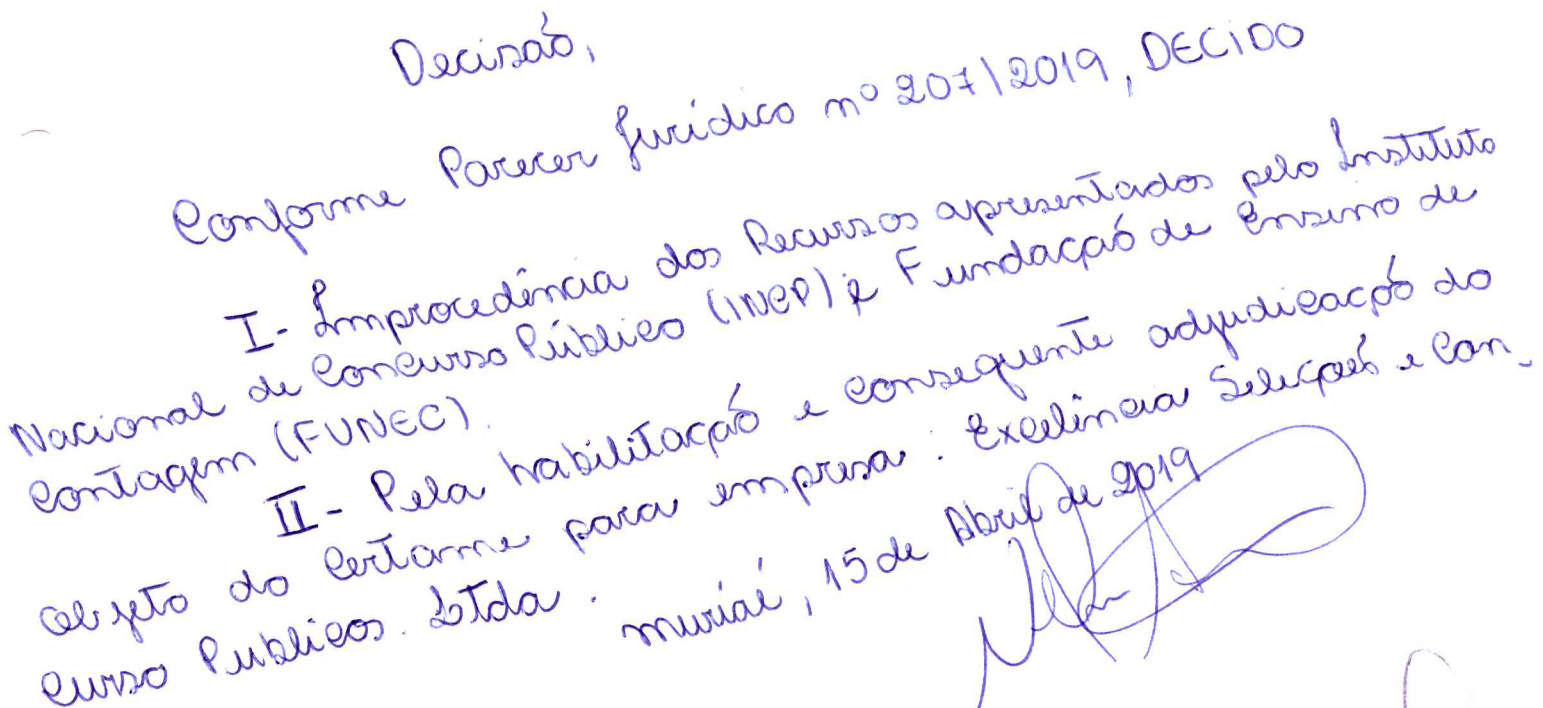 Decisaõ,
Conforme Parecer Jurídico nº 207/2019, DECIDO
I - Improcedência dos Recursos apresentados pelo Instituto
Nacional de Concurso Público (INCP) e Fundaçaõ de Ensino de
Contagem (FUNEC).
II - Pela habilitaçaõ e consequente adjudicaçaõ do
objeto do Certame para empresa: Excelência Seleçoes e Con-
curso Publicos Ltda.
Muriaé, 15 de Abril de 2019